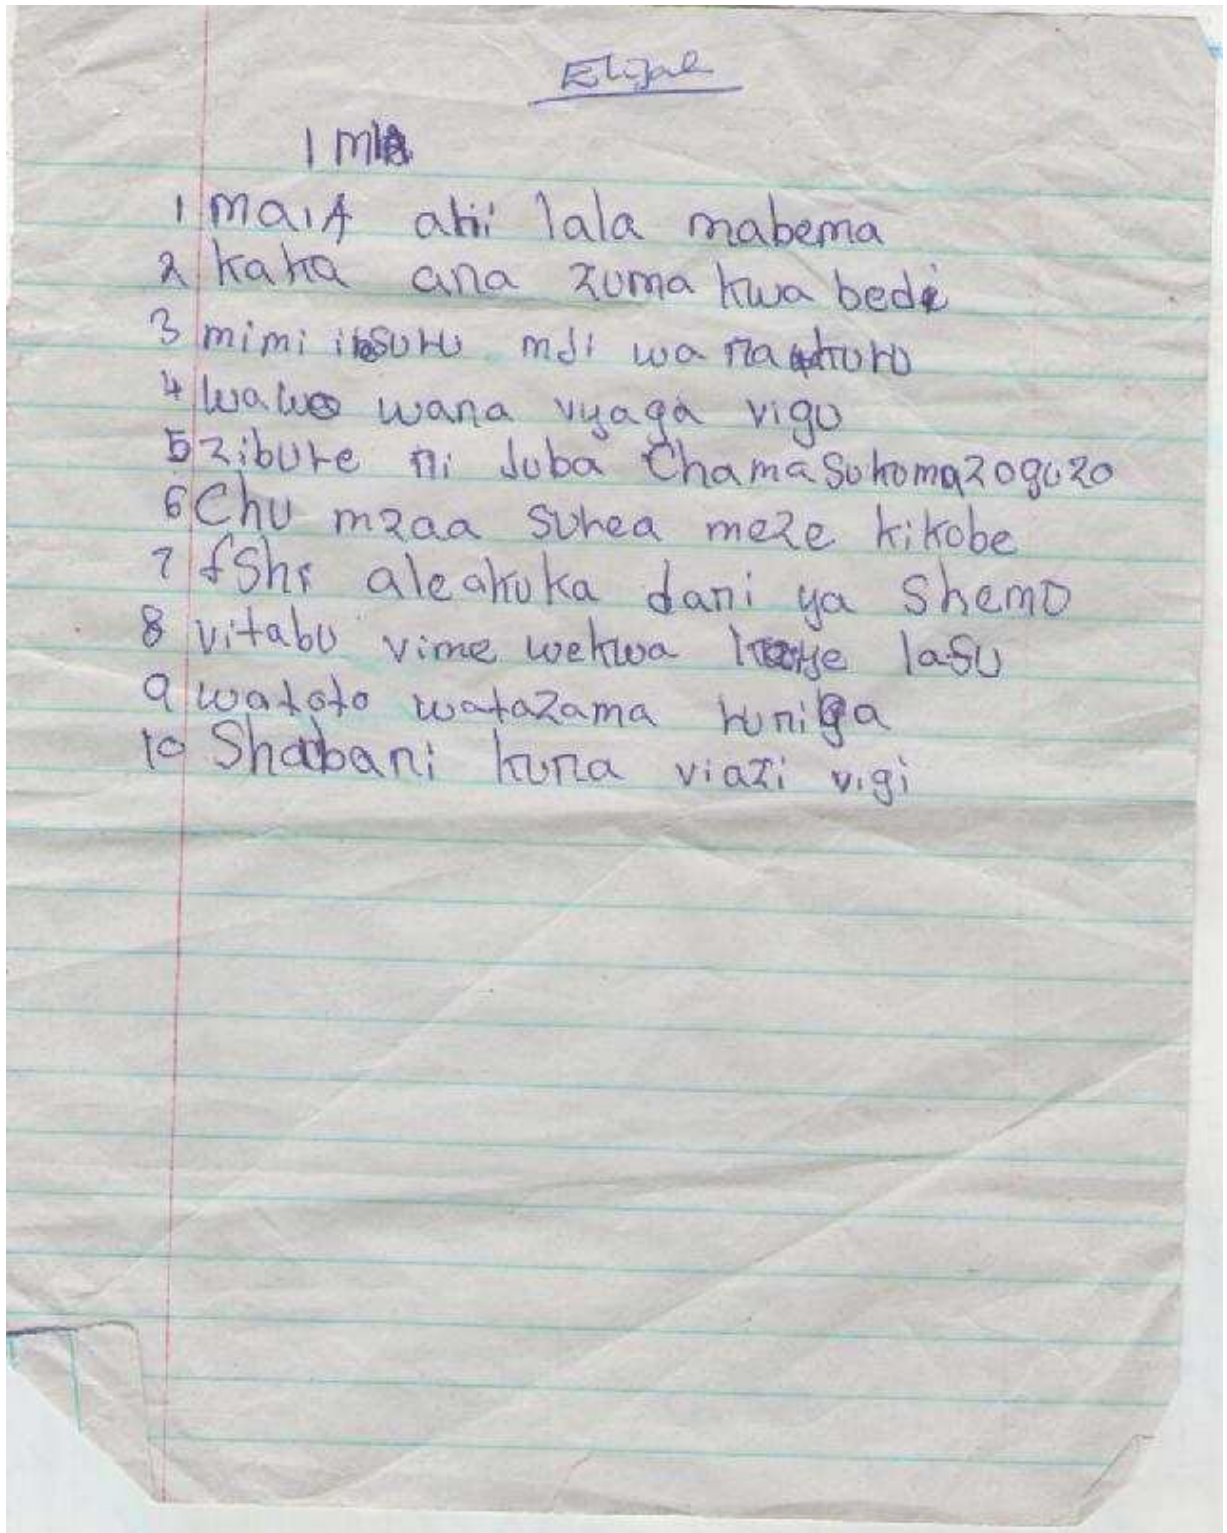 Elijah
1 mla
1 maiA aki lala mabema
2 kaka ana zuma kwa bede
3 mimi iksuku mji wa nakuru
4 wawo wana vyaga vigu
5 zibuke ni Juba Chama Sukoma zoguzo
6 Chu mzaa sukea meze kikobe
7 aleakuka dani ya Shemo
8 vitabu vime wekwa lasu
9 watoto watazama kuniga
10 Shabani kuna viazi vigi